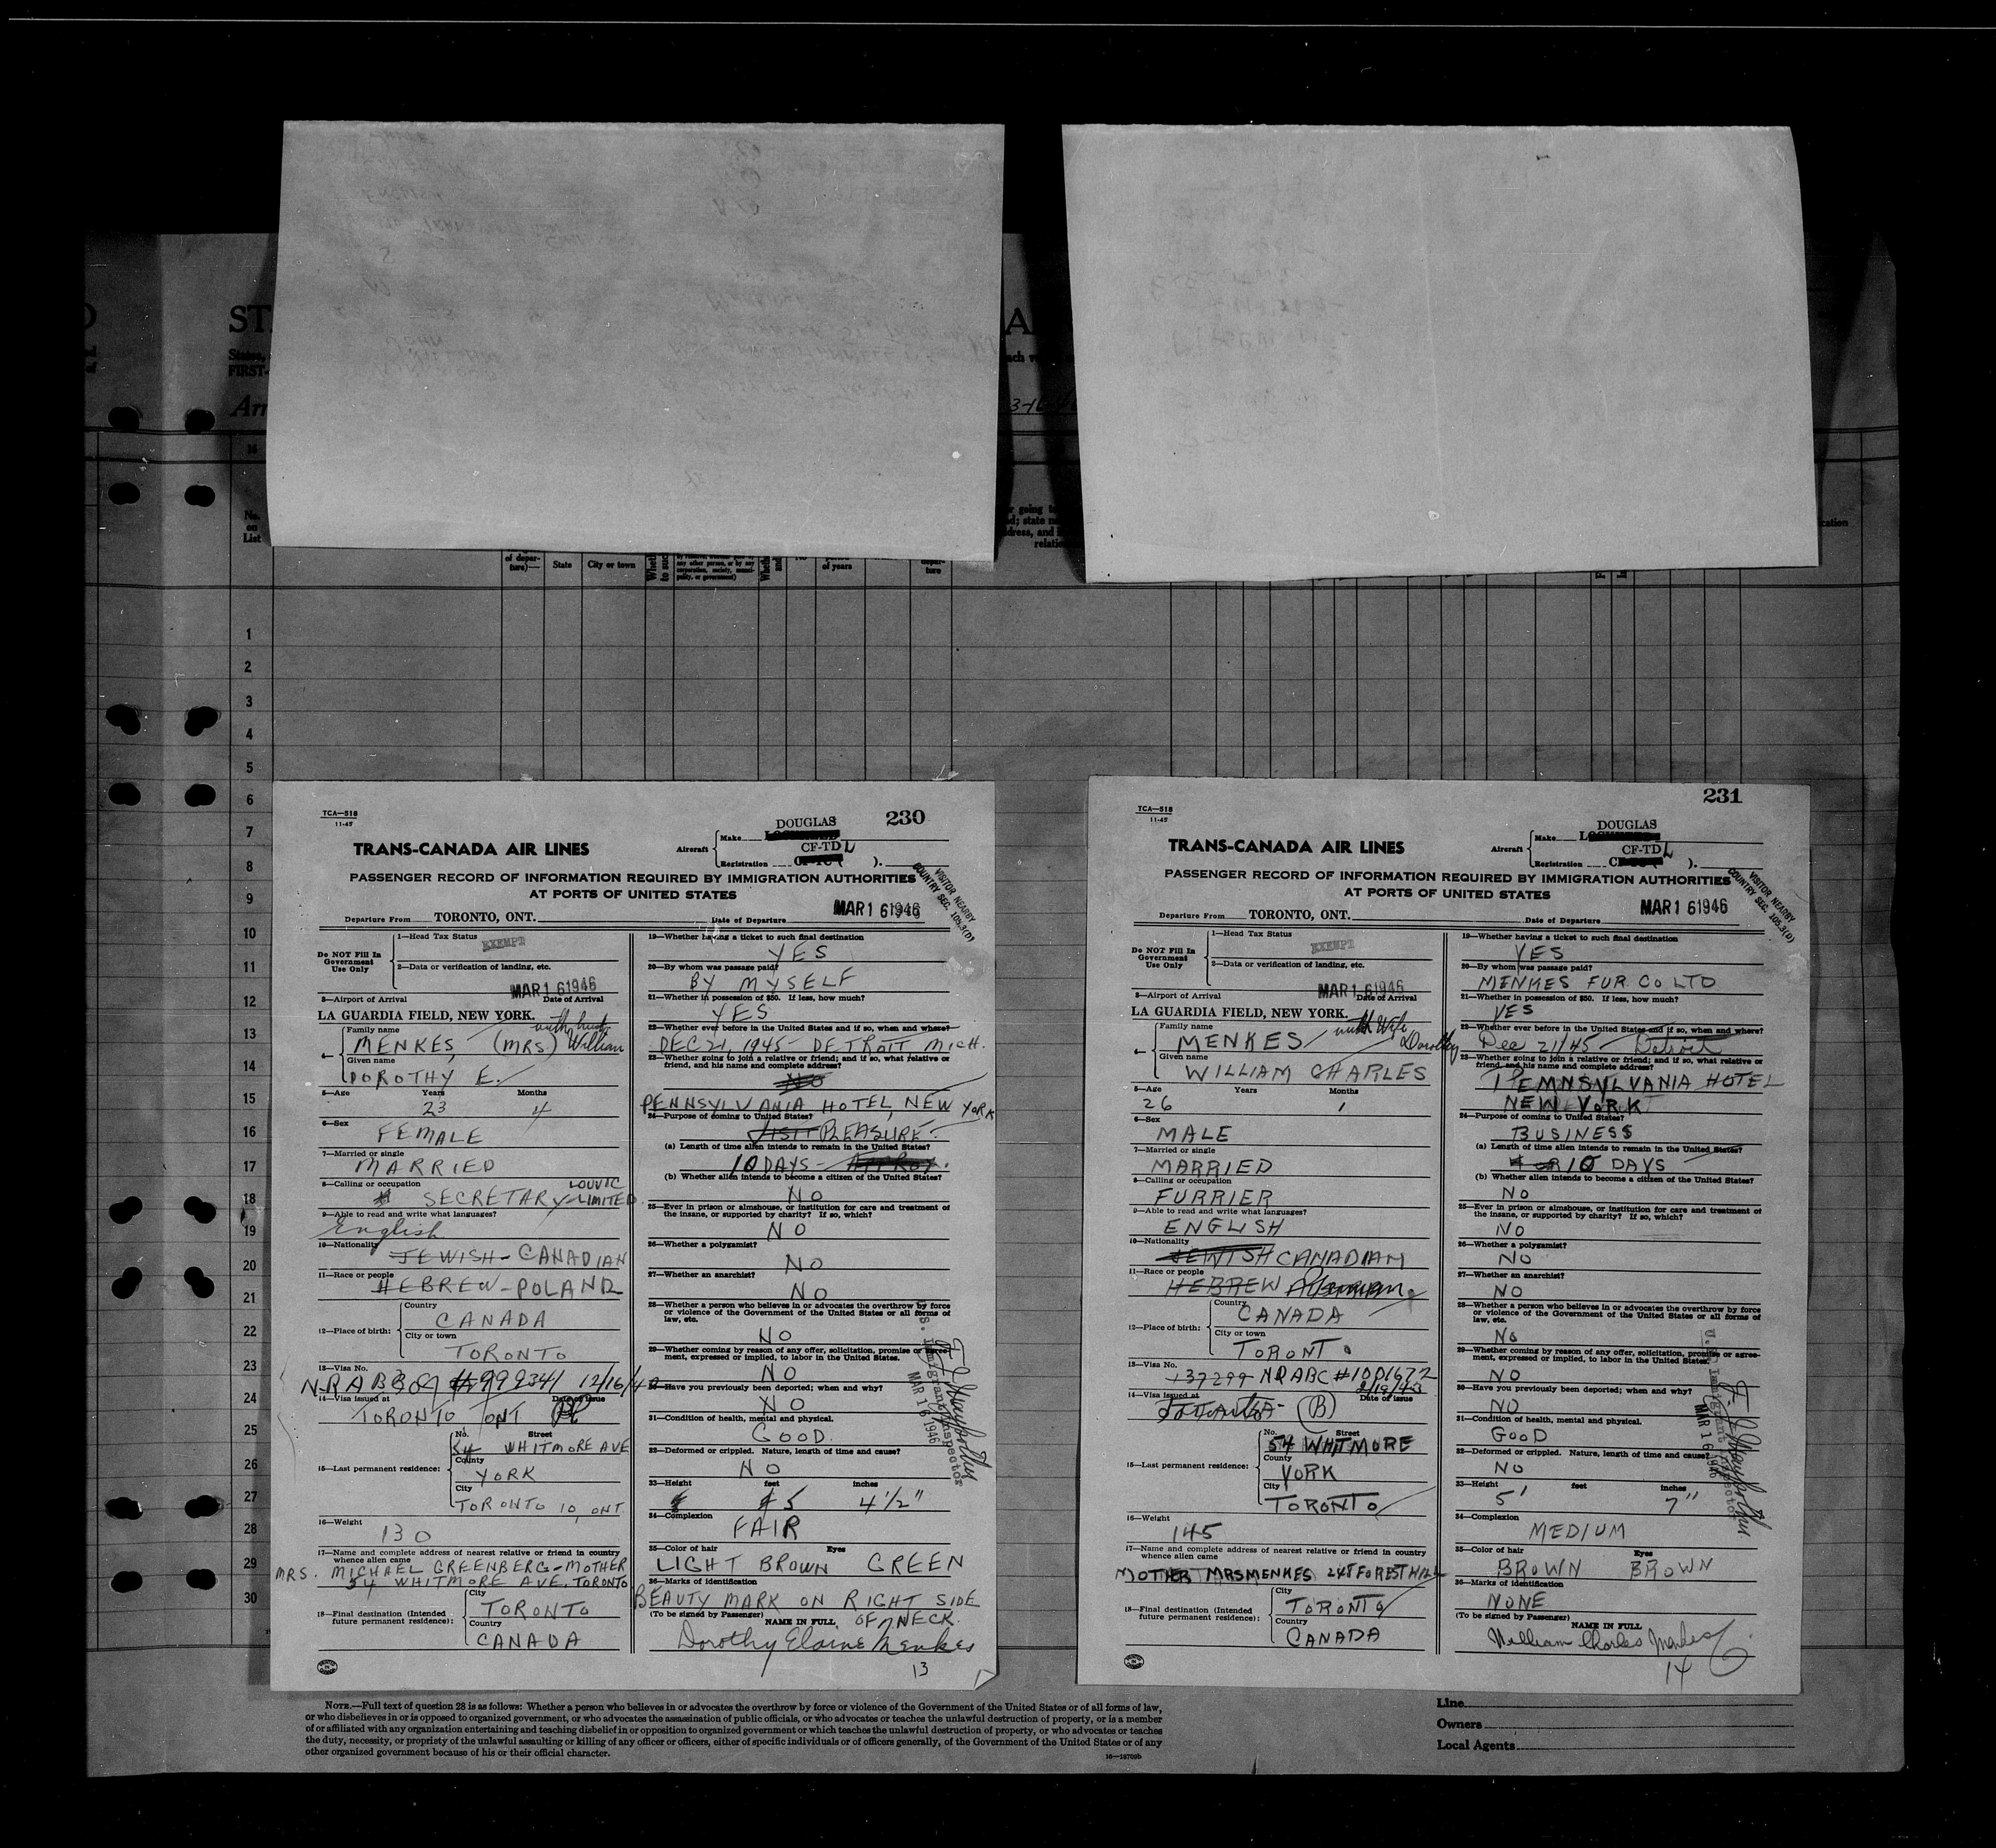 ST
States,
FIRST-
Arr
3-16-46
No.
on
List
of depar-
ture)—
State
City or town
of years
1
2
3
4
5
6
7
8
9
10
11
12
13
14
15
16
17
18
19
20
21
22
23
24
25
26
27
28
29
30
TCA—518
11-45
230
TRANS-CANADA AIR LINES
Aircraft
Make DOUGLAS
Registration CF-TDL ).
PASSENGER RECORD OF INFORMATION REQUIRED BY IMMIGRATION AUTHORITIES
AT PORTS OF UNITED STATES
VISITOR NEARBY
COUNTRY SEC. 105.3(D)
Departure From TORONTO, ONT. Date of Departure MAR 16 1946
Do NOT Fill In
Government
Use Only
1—Head Tax Status EXEMPT
2—Data or verification of landing, etc.
3—Airport of Arrival MAR 16 1946 Date of Arrival
LA GUARDIA FIELD, NEW YORK.
4—
Family name
MENKES (MRS) with husb. William
Given name
DOROTHY E.
5—Age Years Months
23 4
6—Sex
FEMALE
7—Married or single
MARRIED
8—Calling or occupation
SECRETARY—LOUVIC LIMITED
9—Able to read and write what languages?
English
10—Nationality
JEWISH - CANADIAN
11—Race or people
HEBREW - POLAND
12—Place of birth:
Country
CANADA
City or town
TORONTO
13—Visa No.
14—Visa issued at Date of Issue
TORONTO, ONT
15—Last permanent residence:
No. Street
54 WHITMORE AVE
County
YORK
City
TORONTO 10, ONT.
16—Weight
130
17—Name and complete address of nearest relative or friend in country
whence alien came
MRS. MICHAEL GREENBERG - MOTHER
54 WHITMORE AVE. TORONTO
18—Final destination (Intended
future permanent residence):
City
TORONTO
Country
CANADA
19—Whether having a ticket to such final destination
YES
20—By whom was passage paid?
BY MYSELF
21—Whether in possession of $50. If less, how much?
YES
22—Whether ever before in the United States and if so, when and where?
DEC 21, 1945 - DETROIT MICH.
23—Whether going to join a relative or friend; and if so, what relative or
friend, and his name and complete address?
NO
PENNSYLVANIA HOTEL, NEW YORK
24—Purpose of coming to United States?
VISIT PLEASURE.
(a) Length of time alien intends to remain in the United States?
10 DAYS - APPROX.
(b) Whether alien intends to become a citizen of the United States?
NO
25—Ever in prison or almshouse, or institution for care and treatment of
the insane, or supported by charity? If so, which?
NO
26—Whether a polygamist?
NO
27—Whether an anarchist?
NO
28—Whether a person who believes in or advocates the overthrow by force
or violence of the Government of the United States or all forms of
law, etc.
NO
29—Whether coming by reason of any offer, solicitation, promise or agree-
ment, expressed or implied, to labor in the United States.
NO
30—Have you previously been deported; when and why?
NO
31—Condition of health, mental and physical.
GOOD.
32—Deformed or crippled. Nature, length of time and cause?
NO
33—Height feet inches
5 4 1/2"
34—Complexion
FAIR
35—Color of hair Eyes
LIGHT BROWN GREEN
36—Marks of identification
BEAUTY MARK ON RIGHT SIDE
OF NECK.
(To be signed by Passenger) NAME IN FULL
Dorothy Elaine Menkes
13
U.S. Immigrant Inspector
MAR 16 1946
TCA—518
11-45
231
TRANS-CANADA AIR LINES
Aircraft
Make DOUGLAS
Registration CF-TDL ).
PASSENGER RECORD OF INFORMATION REQUIRED BY IMMIGRATION AUTHORITIES
AT PORTS OF UNITED STATES
VISITOR NEARBY
COUNTRY SEC. 105.3(D)
Departure From TORONTO, ONT. Date of Departure MAR 16 1946
Do NOT Fill In
Government
Use Only
1—Head Tax Status EXEMPT
2—Data or verification of landing, etc.
3—Airport of Arrival MAR 16 1946 Date of Arrival
LA GUARDIA FIELD, NEW YORK.
4—
Family name
MENKES with Wife Dorothy
Given name
WILLIAM CHARLES
5—Age Years Months
26 1
6—Sex
MALE
7—Married or single
MARRIED
8—Calling or occupation
FURRIER
9—Able to read and write what languages?
ENGLISH
10—Nationality
JEWISH CANADIAN
11—Race or people
HEBREW
12—Place of birth:
Country
CANADA
City or town
TORONTO
13—Visa No.
137299 NRABC #1001672
14—Visa issued at Date of Issue
Toronto (B)
15—Last permanent residence:
No. Street
54 WHITMORE
County
YORK
City
TORONTO
16—Weight
145
17—Name and complete address of nearest relative or friend in country
whence alien came
MOTHER MRS MENKES 248 FOREST HILL
18—Final destination (Intended
future permanent residence):
City
TORONTO
Country
CANADA
19—Whether having a ticket to such final destination
YES
20—By whom was passage paid?
MENKES FUR CO LTD
21—Whether in possession of $50. If less, how much?
YES
22—Whether ever before in the United States and if so, when and where?
Dec 21/45 - Detroit
23—Whether going to join a relative or friend; and if so, what relative or
friend, and his name and complete address?
PENNSYLVANIA HOTEL
NEW YORK
24—Purpose of coming to United States?
BUSINESS
(a) Length of time alien intends to remain in the United States?
10 DAYS
(b) Whether alien intends to become a citizen of the United States?
NO
25—Ever in prison or almshouse, or institution for care and treatment of
the insane, or supported by charity? If so, which?
NO
26—Whether a polygamist?
NO
27—Whether an anarchist?
NO
28—Whether a person who believes in or advocates the overthrow by force
or violence of the Government of the United States or all forms of
law, etc.
No
29—Whether coming by reason of any offer, solicitation, promise or agree-
ment, expressed or implied, to labor in the United States.
NO
30—Have you previously been deported; when and why?
NO
31—Condition of health, mental and physical.
GOOD
32—Deformed or crippled. Nature, length of time and cause?
NO
33—Height feet inches
5' 7"
34—Complexion
MEDIUM
35—Color of hair Eyes
BROWN BROWN
36—Marks of identification
NONE
(To be signed by Passenger) NAME IN FULL
William Charles Menkes
14
U.S. Immigrant Inspector
MAR 16 1946
NOTE.—Full text of question 28 is as follows: Whether a person who believes in or advocates the overthrow by force or violence of the Government of the United States or of all forms of law,
or who disbelieves in or is opposed to organized government, or who advocates the assassination of public officials, or who advocates or teaches the unlawful destruction of property, or is a member
of or affiliated with any organization entertaining and teaching disbelief in or opposition to organized government or which teaches the unlawful destruction of property, or who advocates or teaches
the duty, necessity, or propriety of the unlawful assaulting or killing of any officer or officers, either of specific individuals or of officers generally, of the Government of the United States or of any
other organized government because of his or their official character.
16—18709b
Line
Owners
Local Agents